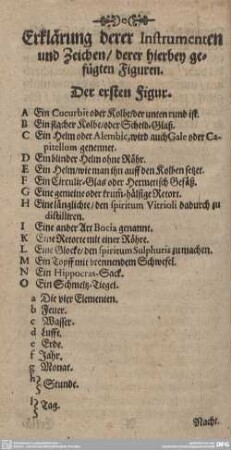 Erklärung derer Instrumenten
und Zeichen/ derer hierbey ge-
fügten Figuren.
Der ersten Figur.
A Ein Cucurbit oder Kolbe/der unten rund ist.
B Ein flacher Kolbe/oder Scheid-Glaß.
C Ein Helm oder Alembic, wird auch Gale oder Ca-
pitellum genennet.
D Ein blinder Helm ohne Röhr.
E Ein Helm/wie man ihn auff den Kolben setzet.
F Ein Circulir-Glas oder Hermetisch Gefäß.
G Eine gemeine oder krum-hälsige Retort.
H Eine länglichte/ den spiritum Vitrioli dadurch zu
distilliren.
I Eine ander Art Bocia genannt.
K Eine Retorte mit einer Röhre.
L Eine Glocke/ den spiritum Sulphuris zu machen.
M Ein Topff mit brennendem Schwefel.
N Ein Hippocras-Sack.
O Ein Schmeltz-Tiegel.
a Die vier Elementen.
b Feuer.
c Wasser.
d Lufft.
e Erde.
f Jahr.
g Monat.
h Stunde.
l Tag.
Nacht.